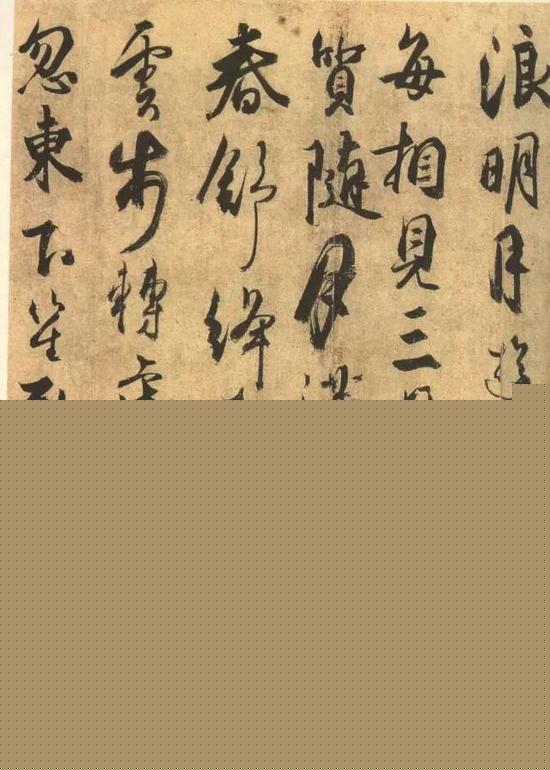 浪明月
每相見三
質隨月
春舒絳
雲步轉
忽東下笙